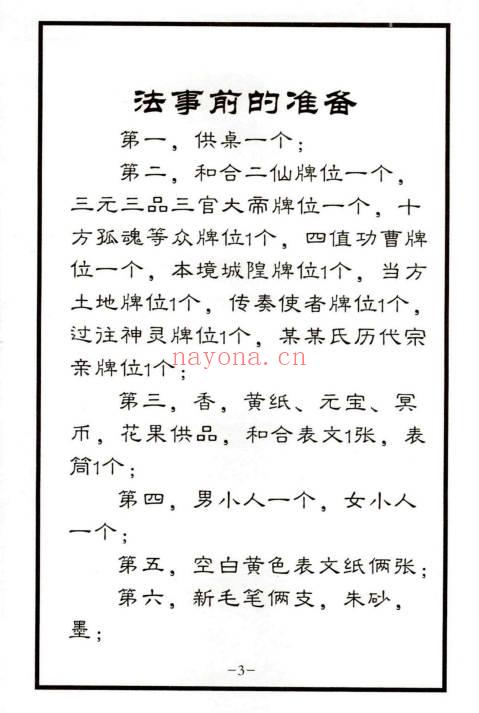 法事前的准备
第一，供桌一个；
第二，和合二仙牌位一个，
三元三品三官大帝牌位一个，十
方孤魂等众牌位1个，四值功曹牌
位一个，本境城隍牌位1个，当方
土地牌位1个，传奏使者牌位1个，
过往神灵牌位1个，某某氏历代宗
nayona.cn
亲牌位1个；
第三，香，黄纸、元宝、冥
币，花果供品，和合表文1张，表
筒1个；
第四，男小人一个，女小人
一个；
第五，空白黄色表文纸俩张；
第六，新毛笔俩支，朱砂，
墨；
-3-